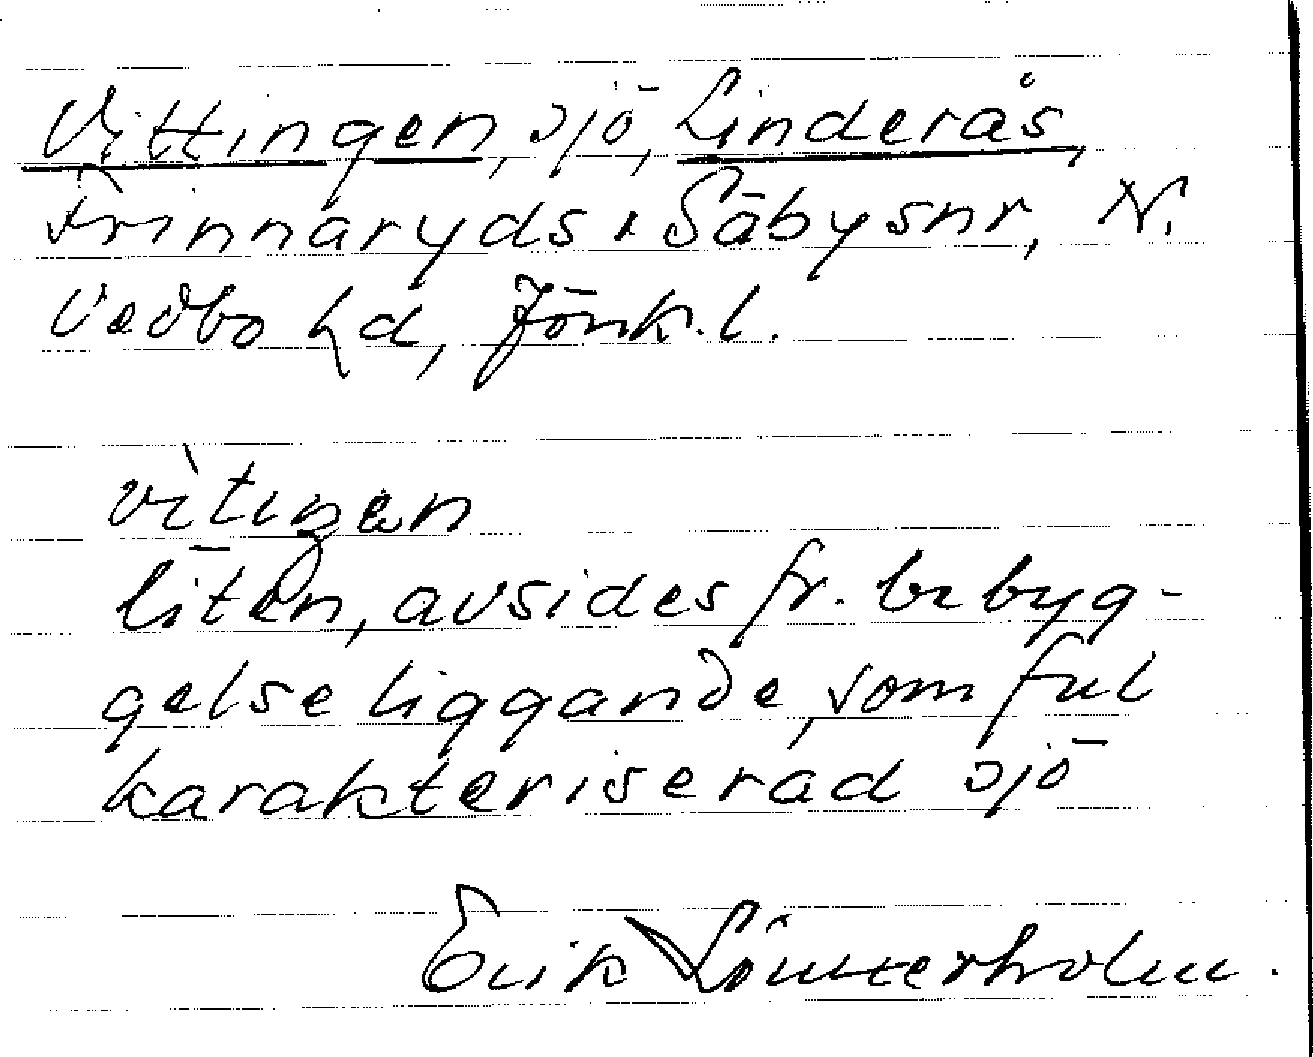 Vittingen, sjö, Linderås,
Frinnaryds & Säby snr, N.
Vedbo hd, Jönk. l.
vìtiŋen
liten, avsides fr. bebyg-
gelse liggande, som ful
karakteriserad sjö
Erik